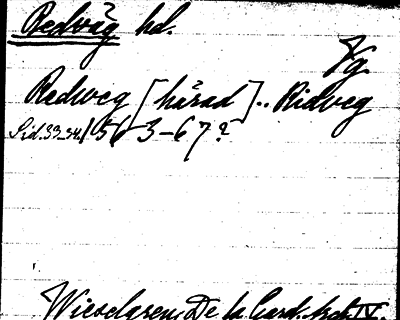 Redväg hd.
Vg
Redweg [härad].. Ridweg
Sid. 33-34./ 1563-67?
Wieselgren, De la Gard. Ark IV.